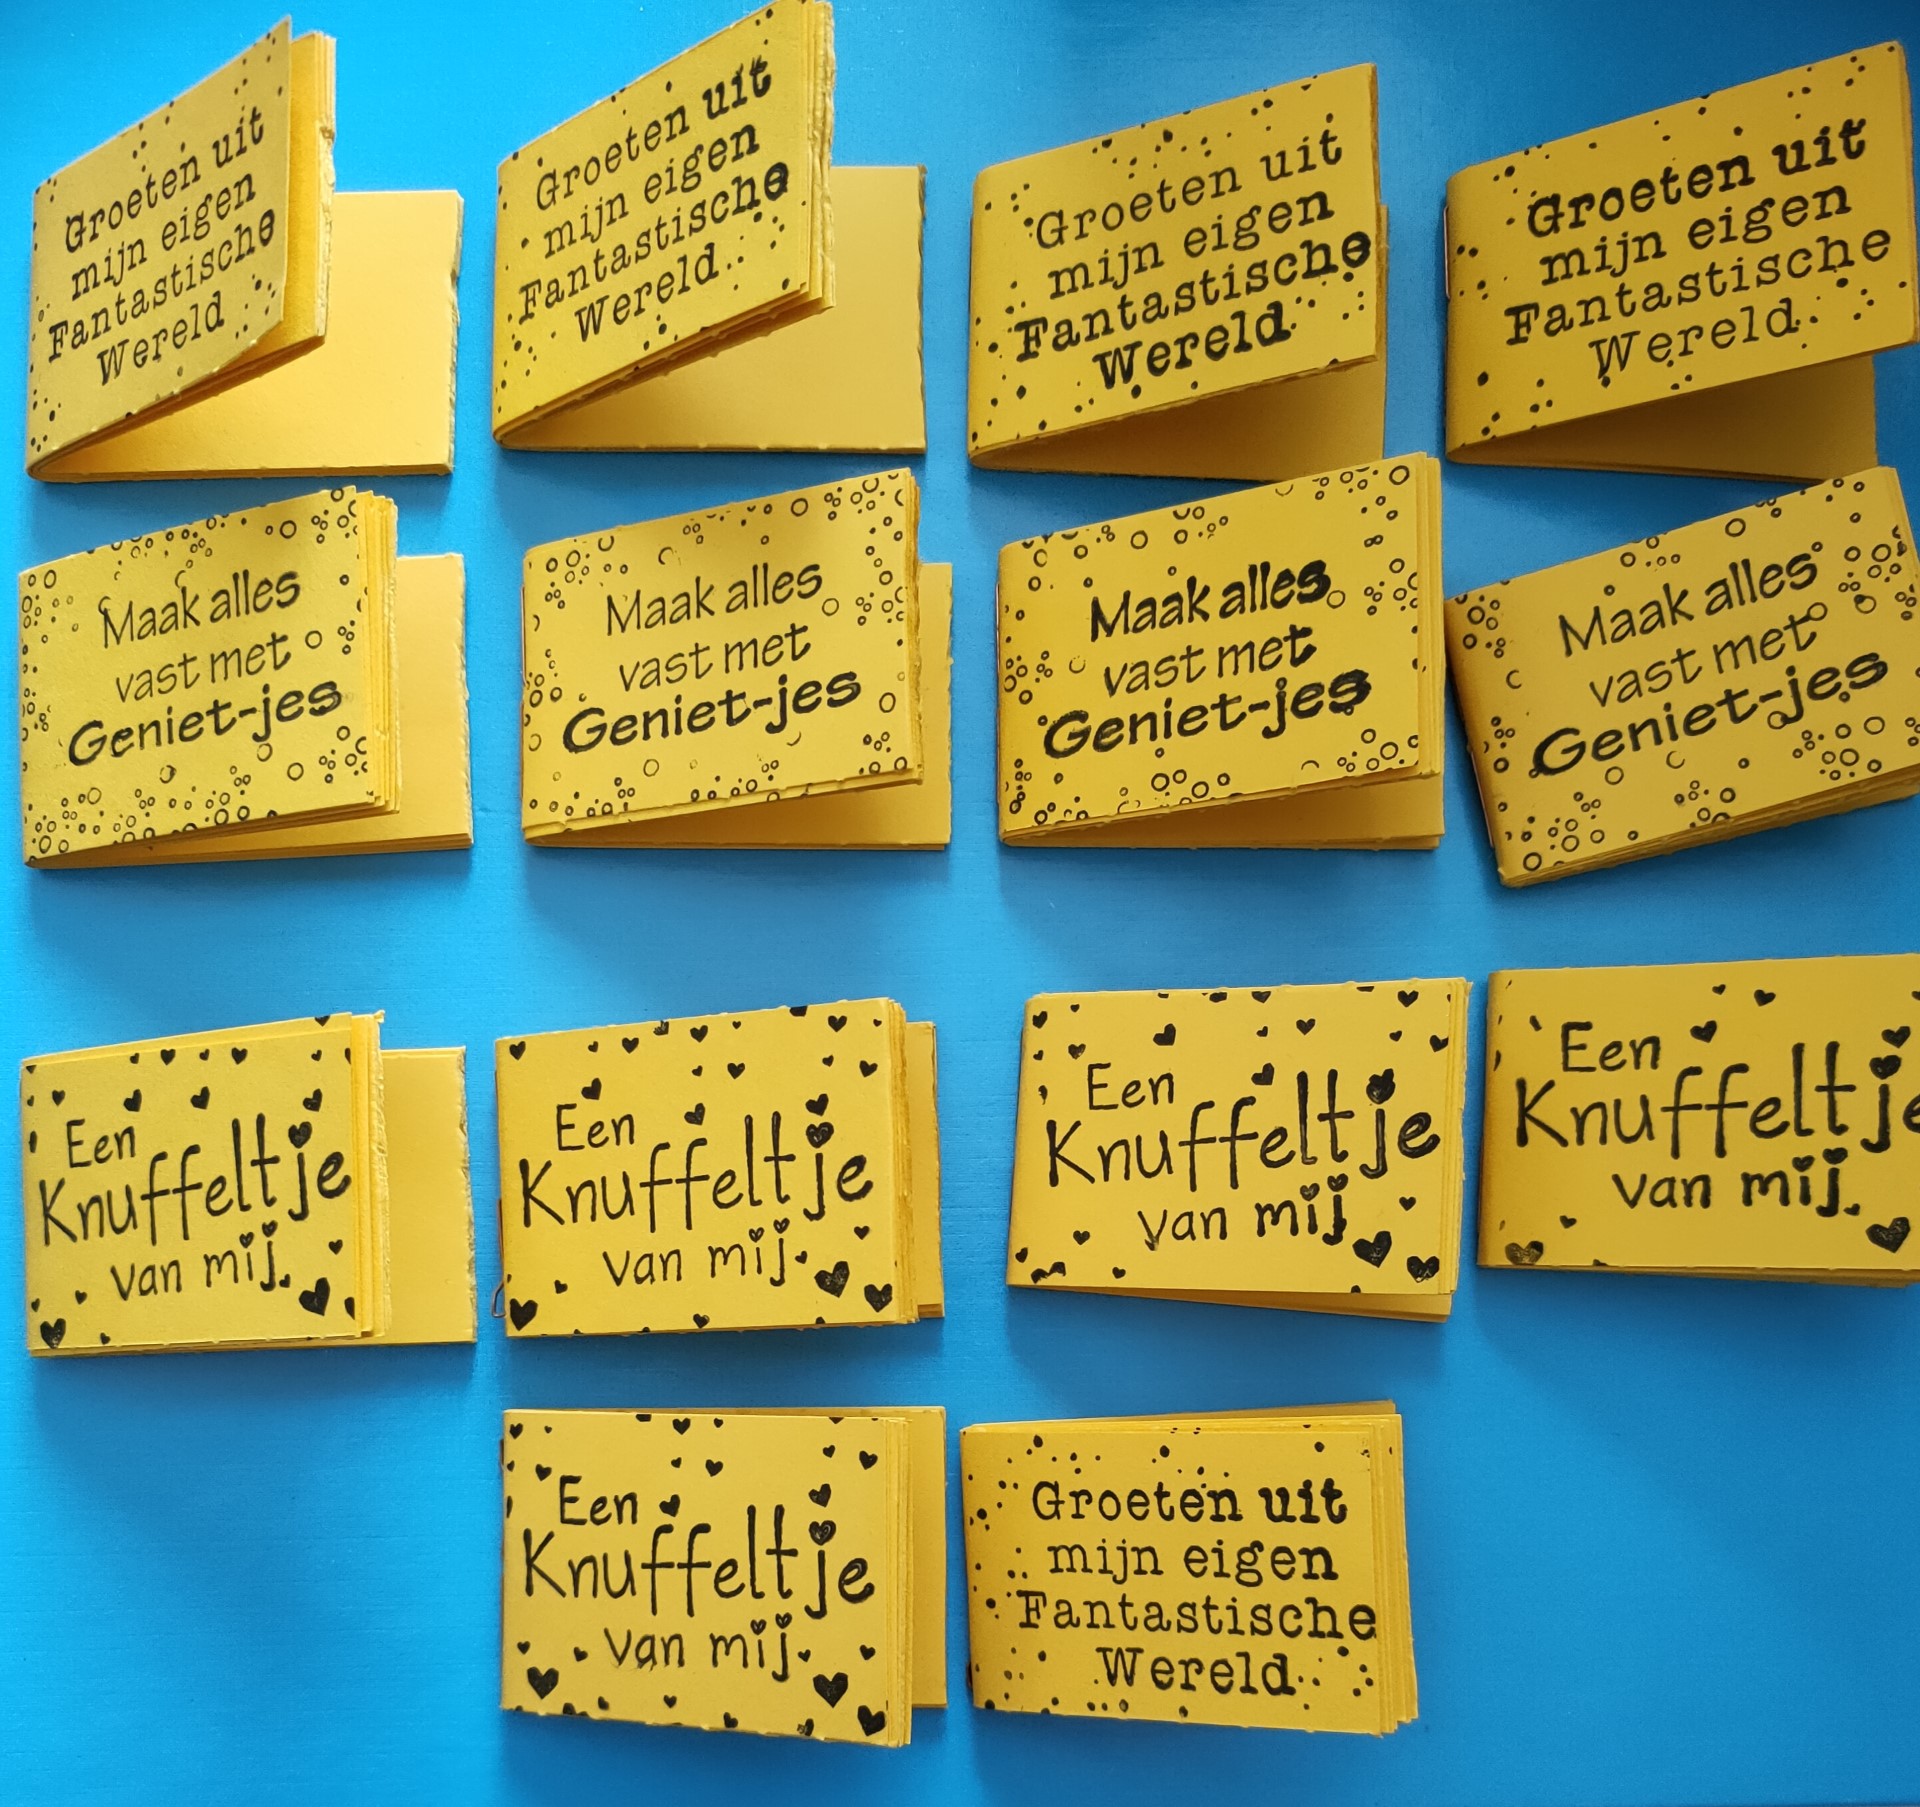 Groeten uit
mijn eigen
Fantastische
Wereld
Groeten uit
mijn eigen
Fantastische
Wereld
Groeten uit
mijn eigen
Fantastische
Wereld
Groeten uit
mijn eigen
Fantastische
Wereld
Maak alles
vast met
Geniet-jes
Maak alles
vast met
Geniet-jes
Maak alles
vast met
Geniet-jes
Maak alles
vast met
Geniet-jes
Een
Knuffeltje
van mij
Een
Knuffeltje
van mij
Een
Knuffeltje
van mij
Een
Knuffeltje
van mij
Een
Knuffeltje
van mij
Groeten uit
mijn eigen
Fantastische
Wereld